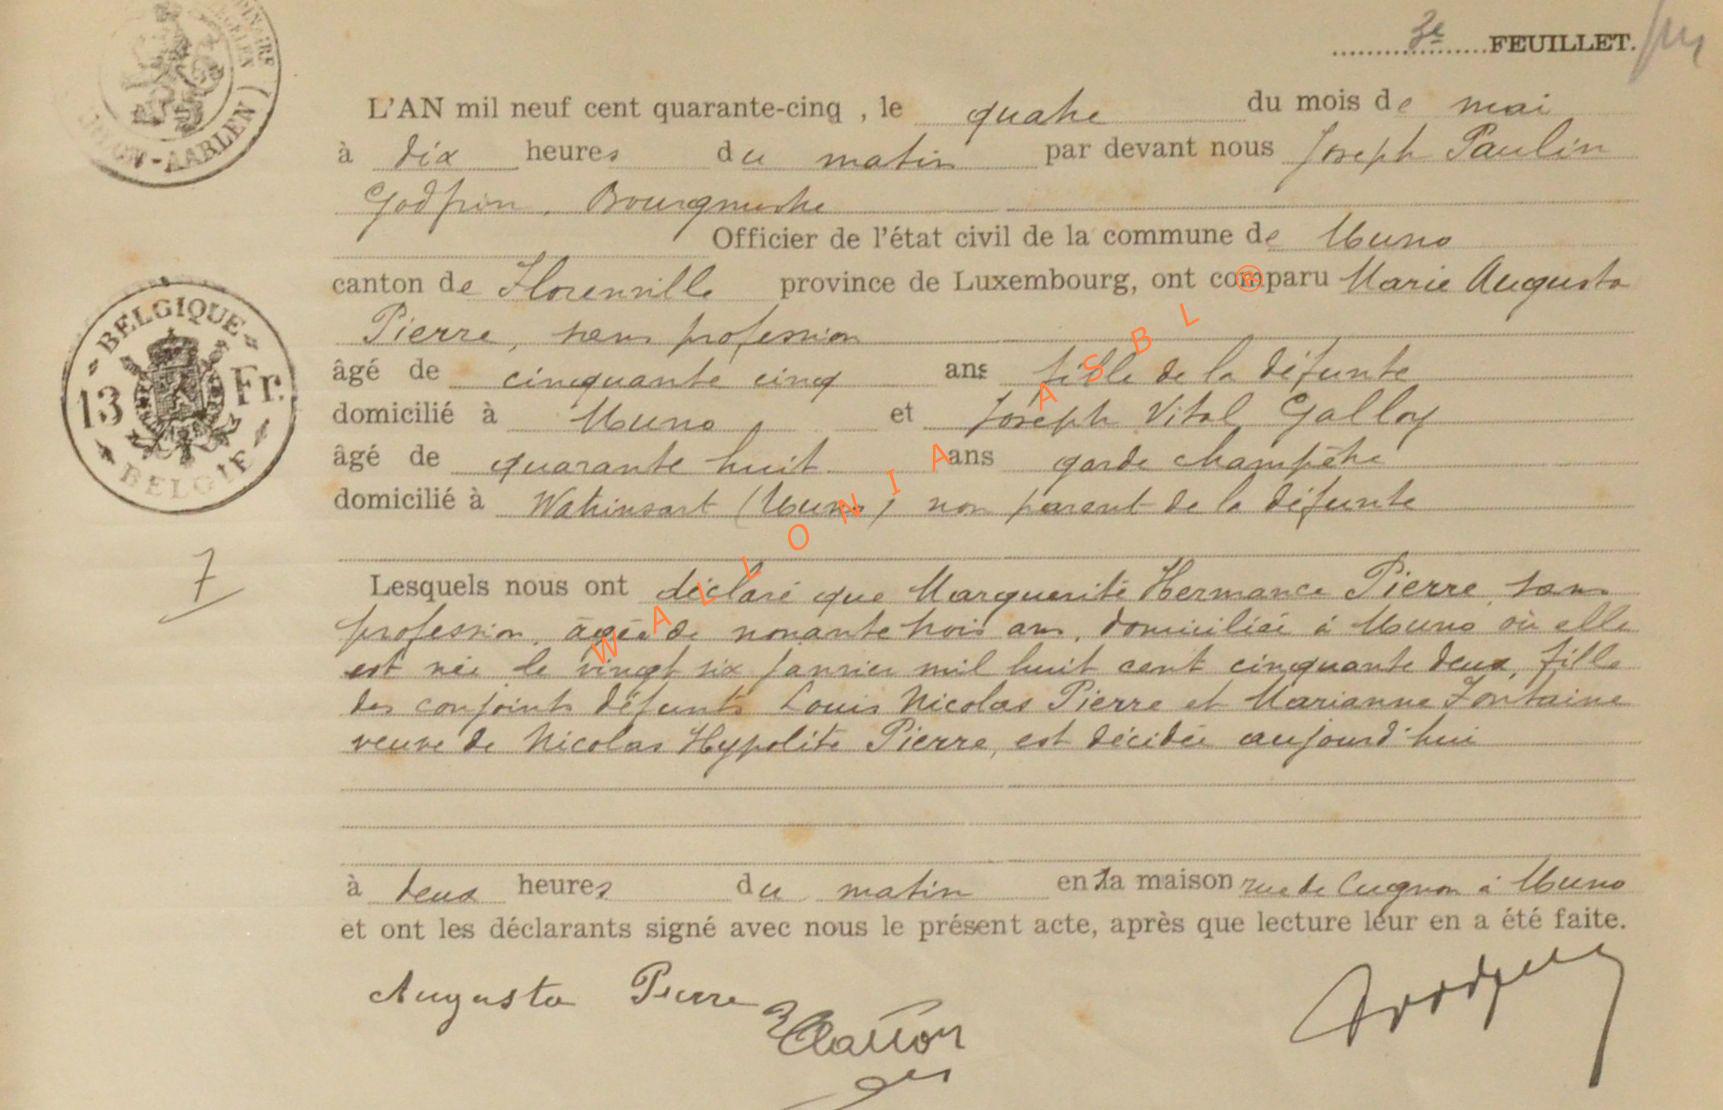 3e FEUILLET.
L'AN mil neuf cent quarante-cinq , le quatre du mois de mai
à dix heures du matin par devant nous Joseph Paulin
Godfrin, Bourgmestre
Officier de l'état civil de la commune de Muno
canton de Florenville province de Luxembourg, ont comparu Marie Augusta
Pierre, sans profession
âgé de cinquante cinq ans fille de la défunte
domicilié à Muno et Joseph Vital Galloy
âgé de quarante huit ans garde champêtre
domicilié à Watrinsart (Muno) non parent de la défunte
BELGIQUE
13 Fr.
BELGIE
7
Lesquels nous ont déclaré que Marguerite Hermance Pierre, sans
profession, âgée de nonante trois ans, domiciliée à Muno où elle
est née le vingt six janvier mil huit cent cinquante deux, fille
des conjoints défunts Louis Nicolas Pierre et Marianne Fontaine
veuve de Nicolas Hypolite Pierre, est décédée aujourd'hui
à deux heures du matin en sa maison rue de Cugnon à Muno
et ont les déclarants signé avec nous le présent acte, après que lecture leur en a été faite.
Augusta Pierre
WALLONIA ASBL ®